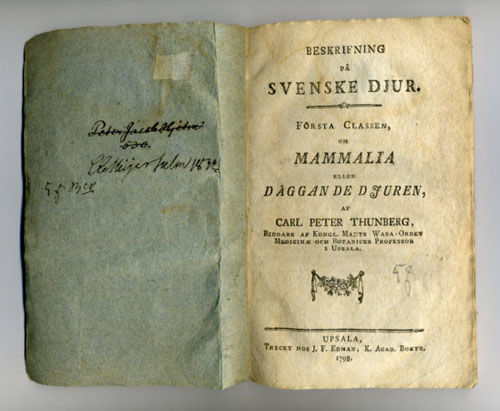 Peter Jacob Hjelm
5 f
BESKRIFNING
PÅ
SVENSKE DJUR.
FÖRSTA CLASSEN,
OM
MAMMALIA
ELLER
DÄGGANDE DJUREN,
AF
CARL PETER THUNBERG,
RIDDARE AF KONGL. MAJTS WASA-ORDEN
MEDICINÆ OCH BOTANICES PROFESSOR
I UPSALA.
58
UPSALA,
TRYCKT HOS J. F. EDMAN, K. ACAD. BOKTR.
1798.